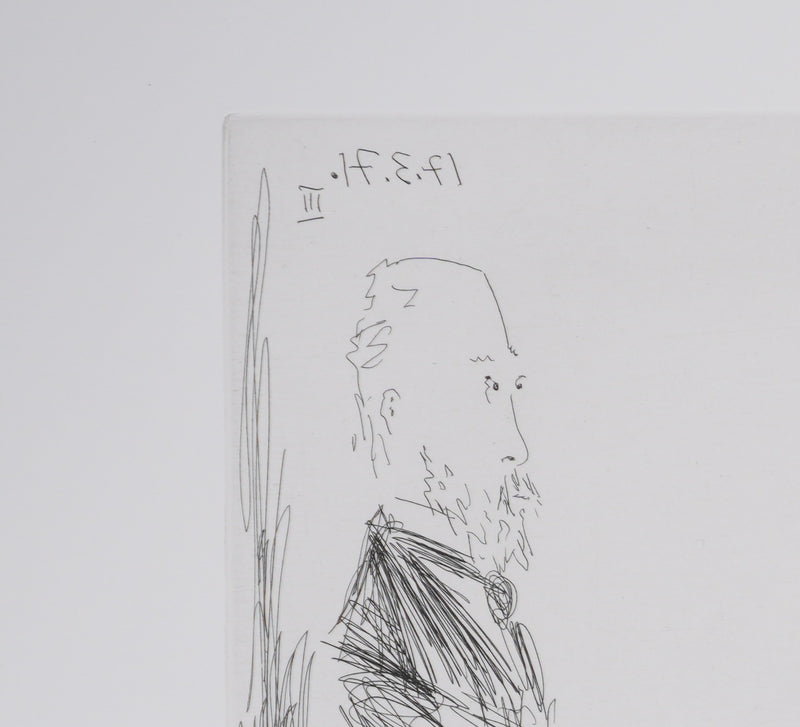 17.3.71.
III